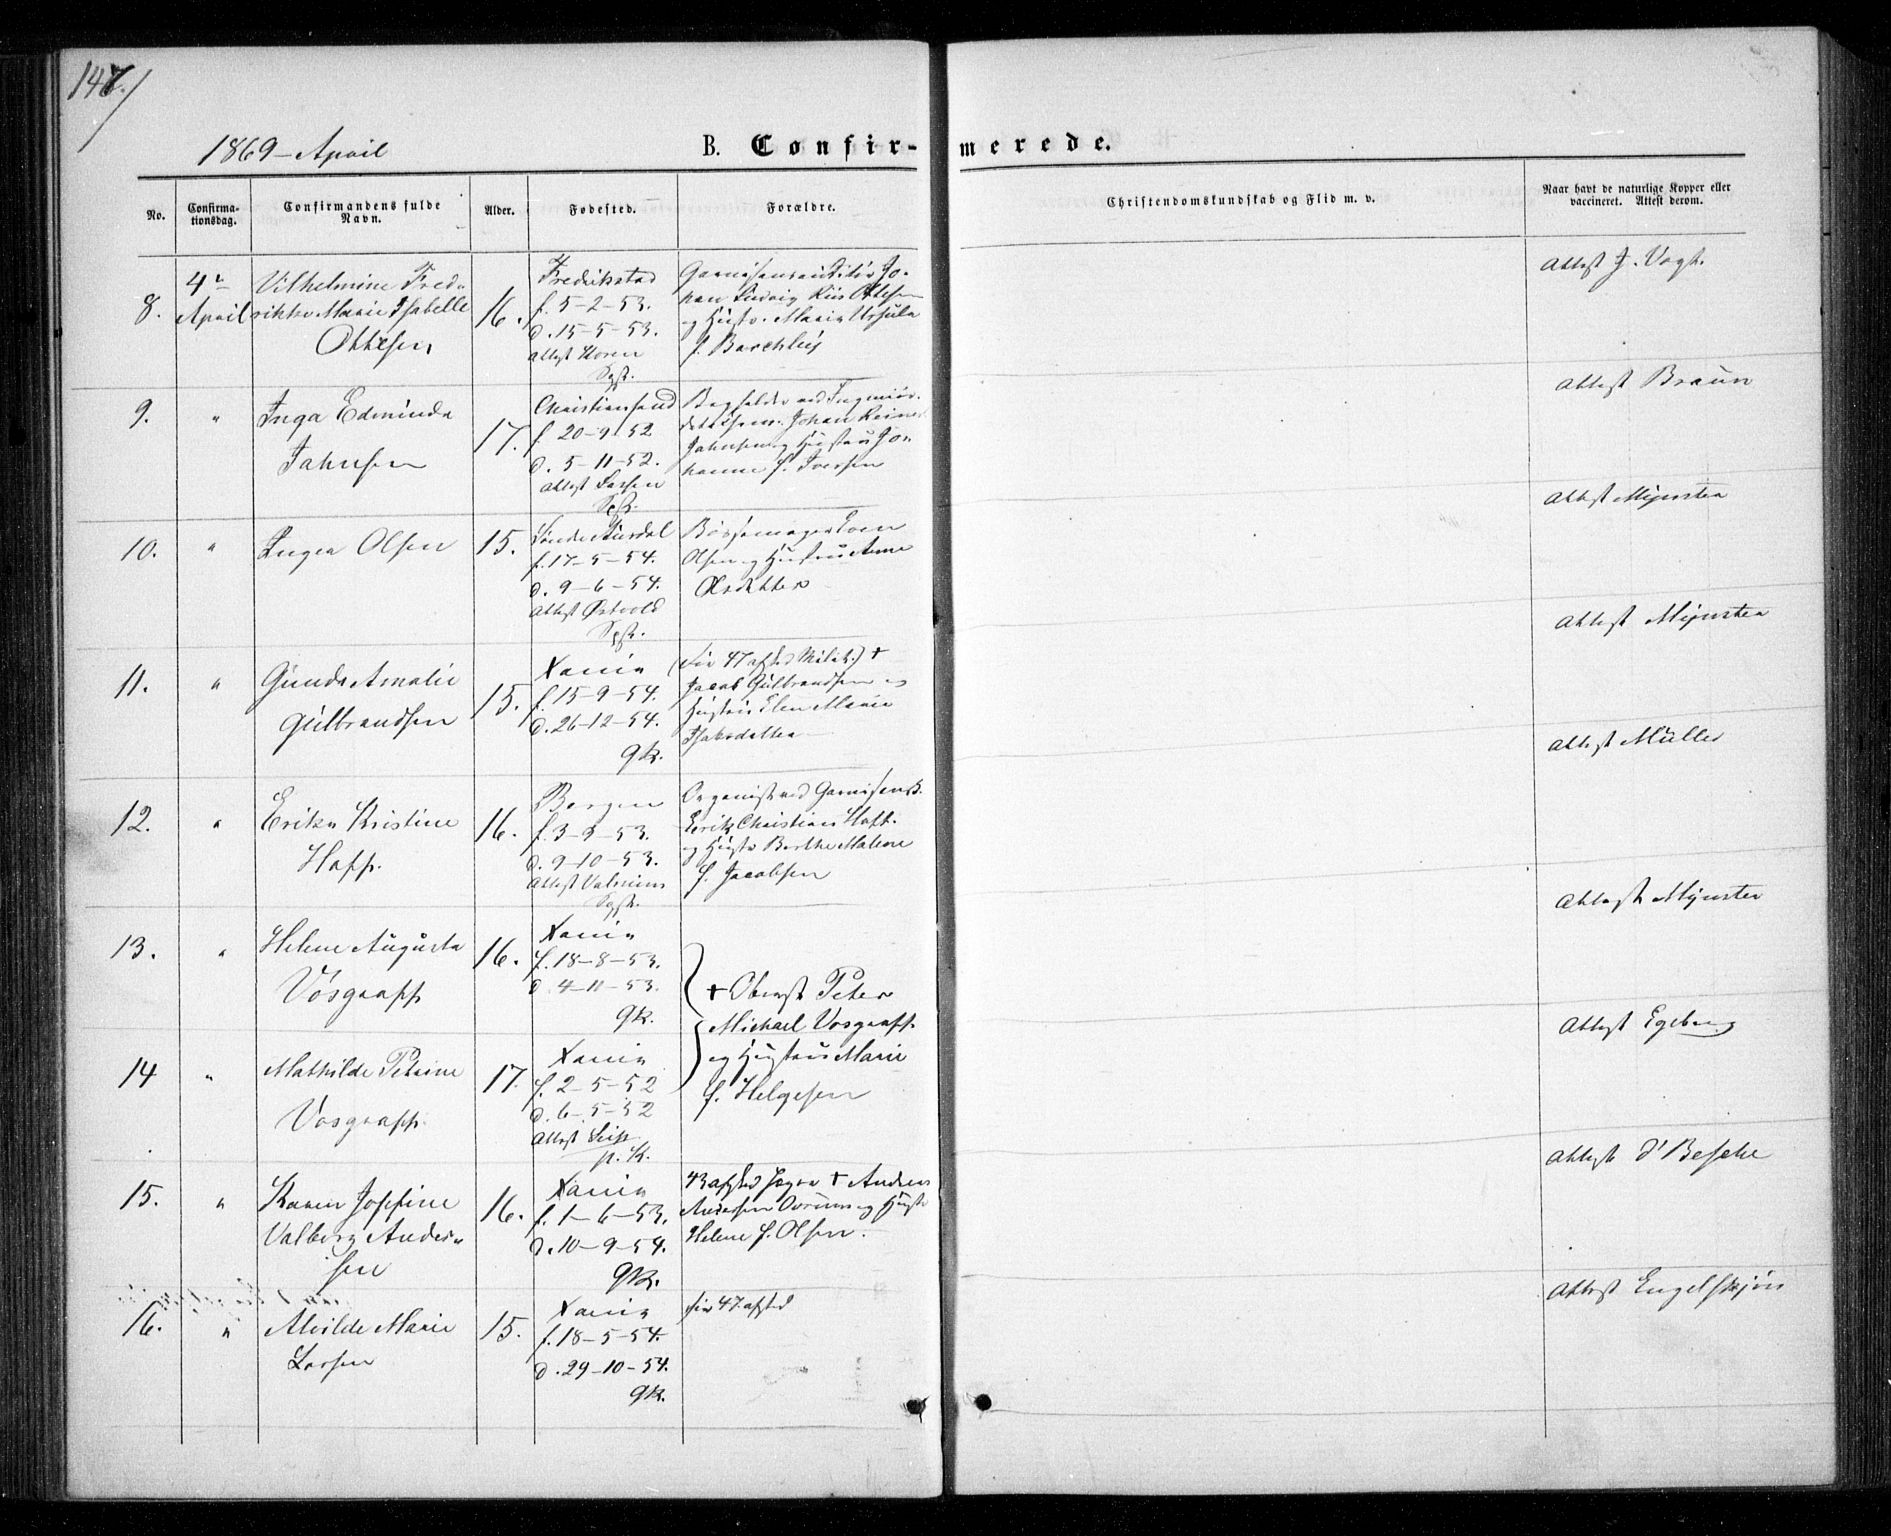 147.
1869 – April
B. Confir-
merede.
No.
Confirma-
tionsdag.
Confirmandens fulde
Navn.
Alder.
Fødested.
Forældre.
Christendomskundskab og Flid m. v.
Naar havt de naturlige Kopper eller
vaccineret. Attest derom.
8.
4de
April
Vilhelmine Fred-
rikke Marie Isabelle
Ottesen
16.
Fredrikstad
f. 5-2-53.
d. 15-5-53.
Attest Koren
Sgpr.
Garnisonsauditør Jo-
han Ludvig Riis Ottesen
og Hustr. Maria Ursula
f. Borchhus
Attest J. Vogt.
9.
"
Inga Edminda
Jahnsen
17.
Christiansand
f. 20-9-52
d. 5-11-52.
Attest Lassen
Sgpr.
Bogholder ved Ingeniør-
Johan Reiner
Jahnsen og Hustru Jo-
hanne f. Iversen
Attest Braun
10.
"
Inger Olsen
15.
Søndre Aurdal
f. 17-5-54.
d. 9-6-54.
Attest Østvold
Sgpr.
Bøssemager Iver
Olsen og Hustru Anne
Olsdatter
Attest Mynster
11.
"
Gunda Amalie
Gulbrandsen
15.
Xania
f. 15-9-54.
d. 26-12-54.
GK.
(Fir 47 afsked Milit.) +
Jacob Gulbrandsen og
Hustru Elen Marie
Isaksdatter
Attest Mynster
12.
"
Erika Kristine
Hoff.
16.
Bergen
f. 3-9-53.
d. 9-10-53.
Attest
Sgpr.
Organist ved Garnisonsk.
Erik Christian Hoff.
og Hustr Berthe Malene
f. Jacobsen
Attest Müller
13.
"
Helene Augusta
Vosgraff
16.
Xania
f. 18-8-53.
d. 4-11-53.
GK.
+ Oberst Peter
Michael Vosgraff.
og Hustru Marie
f. Helgesen
Attest Mynster
14
"
Mathilde Petrine
Vosgraff.
17.
Xania
f. 2-5-52
d. 6-5-52
Attest
p. K.
Attest Egeberg
15.
"
Karen Josefine
Valborg Ander-
sen
16.
Xania
f. 1-6-53.
d. 10-9-54.
GK.
43 afsked Jæger + Anders
Andersen og Hustr
Helene f. Olsen.
Attest d'Besche
16.
"
Alvilde Marie
Larsen
15.
Xania
f. 18-5-54.
d. 29-10-54.
GK.
Fir 47. afsked
Attest Engelskjøn